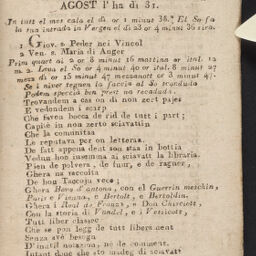 AGOST l' ha di 31.
In tutt el mes cala el dì or 1 minut 38. El So fa
la sua intrada in Vergen el dì 23 or 4 minut 36 sira.
1 Giov. s. Peder nei Vincol
2 Ven. s. Maria di Anger
Prim quart ai 2 or 8 minut 16 mattina or ital. 12
m. 2. Luna el So or 4 minut 40 or ital. 8 minut 27
meza dì or 15 minut 47 mezzanott or 3 minut 47.
Se i niver tegnen la faccia al So scondada
Podem speccià ben prest na rocadada.
Trovandem a cas on dì non zert pajes
E vedondem i scarp
Che faven bocca de rid de tutt i part;
Capitè in non zerto sciavattin
Che la comunitaa
Le reputava per on lettera.
De fatt appena dent son staa in bottia
Vedun hon insemma ai sciavatt la libraria.
Pien de polvera, de fumr, e de ragner,
Ghera na raccolta
De bon Taccoin vecc;
Ghera Bova d' antona, con el Guerrin meschin,
Paris e Vienna, e Bertolt, e Bertoldin,
Ghera i Real de Franza, e Don Chisciott,
Con la storia di Vandel, e i Vessicott,
Tutt liber classic
Che se pon legg de tutt liberament
Senza avè besogn
D' inutil notazion, nè de comment.
Intant donc che sto madeg di sciavatt